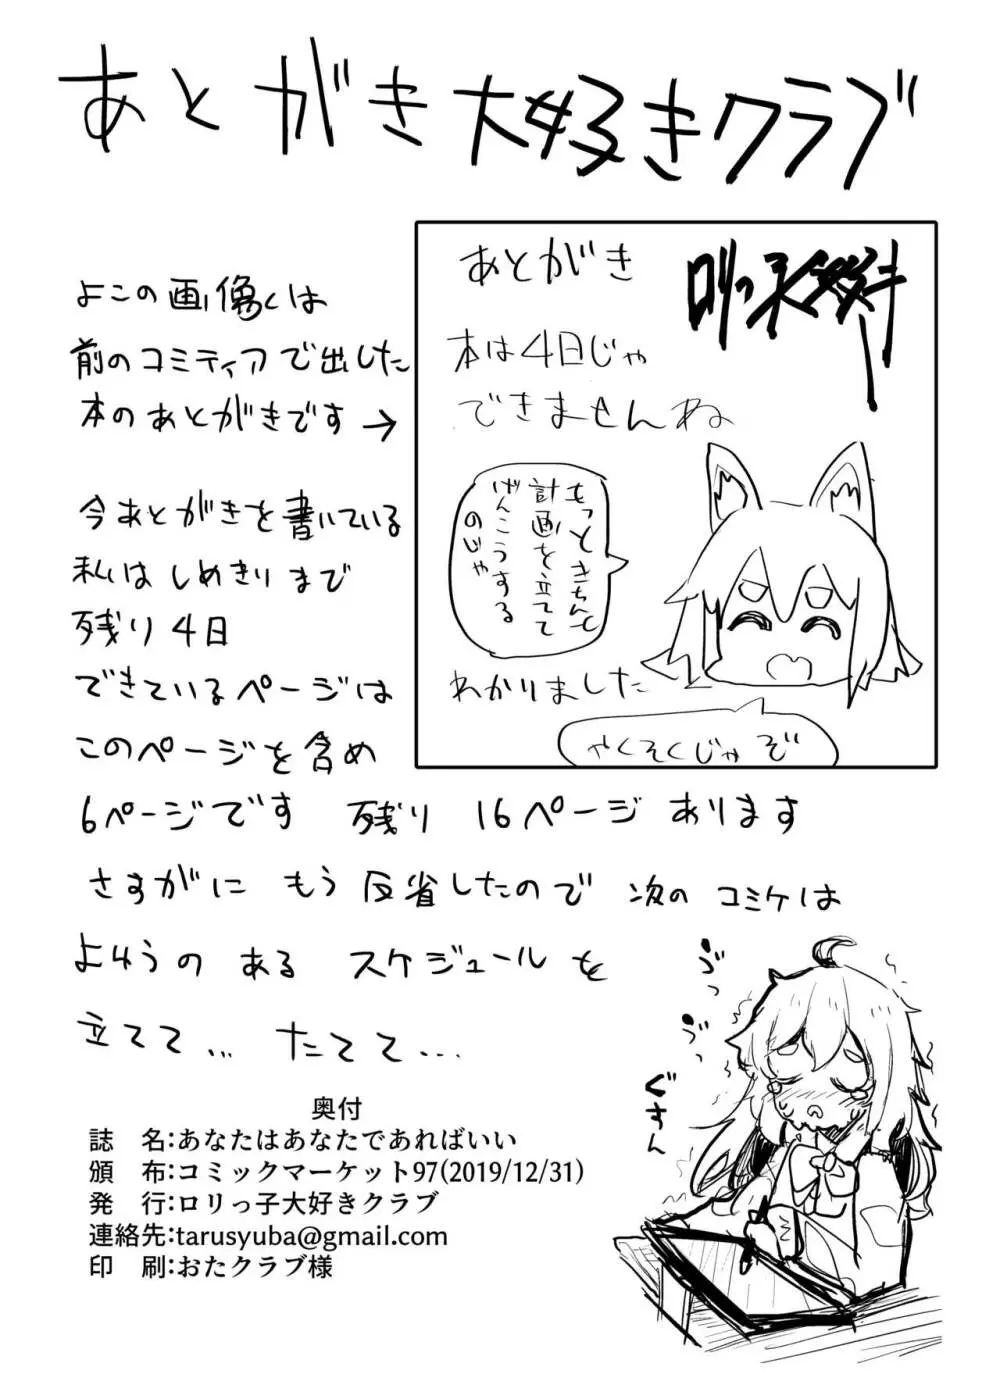 あとがき大好きクラブ
よこの画像くは
前のコミティアで出した
本のあとがきです→
あとがき
本は4日じゃ
できませんね
もっときちんと
計画を立てて
げんこうする
のじゃ
わかりました
やくそくじゃぞ
今あとがきを書いている
私はしめきりまで
残り4日
できているページは
このページを含め
6ページです 残り 16ページ あります
さすがに もう 反省したので 次の コミケは
よゆうの ある スケジュールを
立てて… たてて…
ぐすん
奥付
誌 名:あなたはあなたであればいい
頒 布:コミックマーケット97(2019/12/31)
発 行:ロリっ子大好きクラブ
連絡先:tarusyuba@gmail.com
印 刷:おたクラブ様